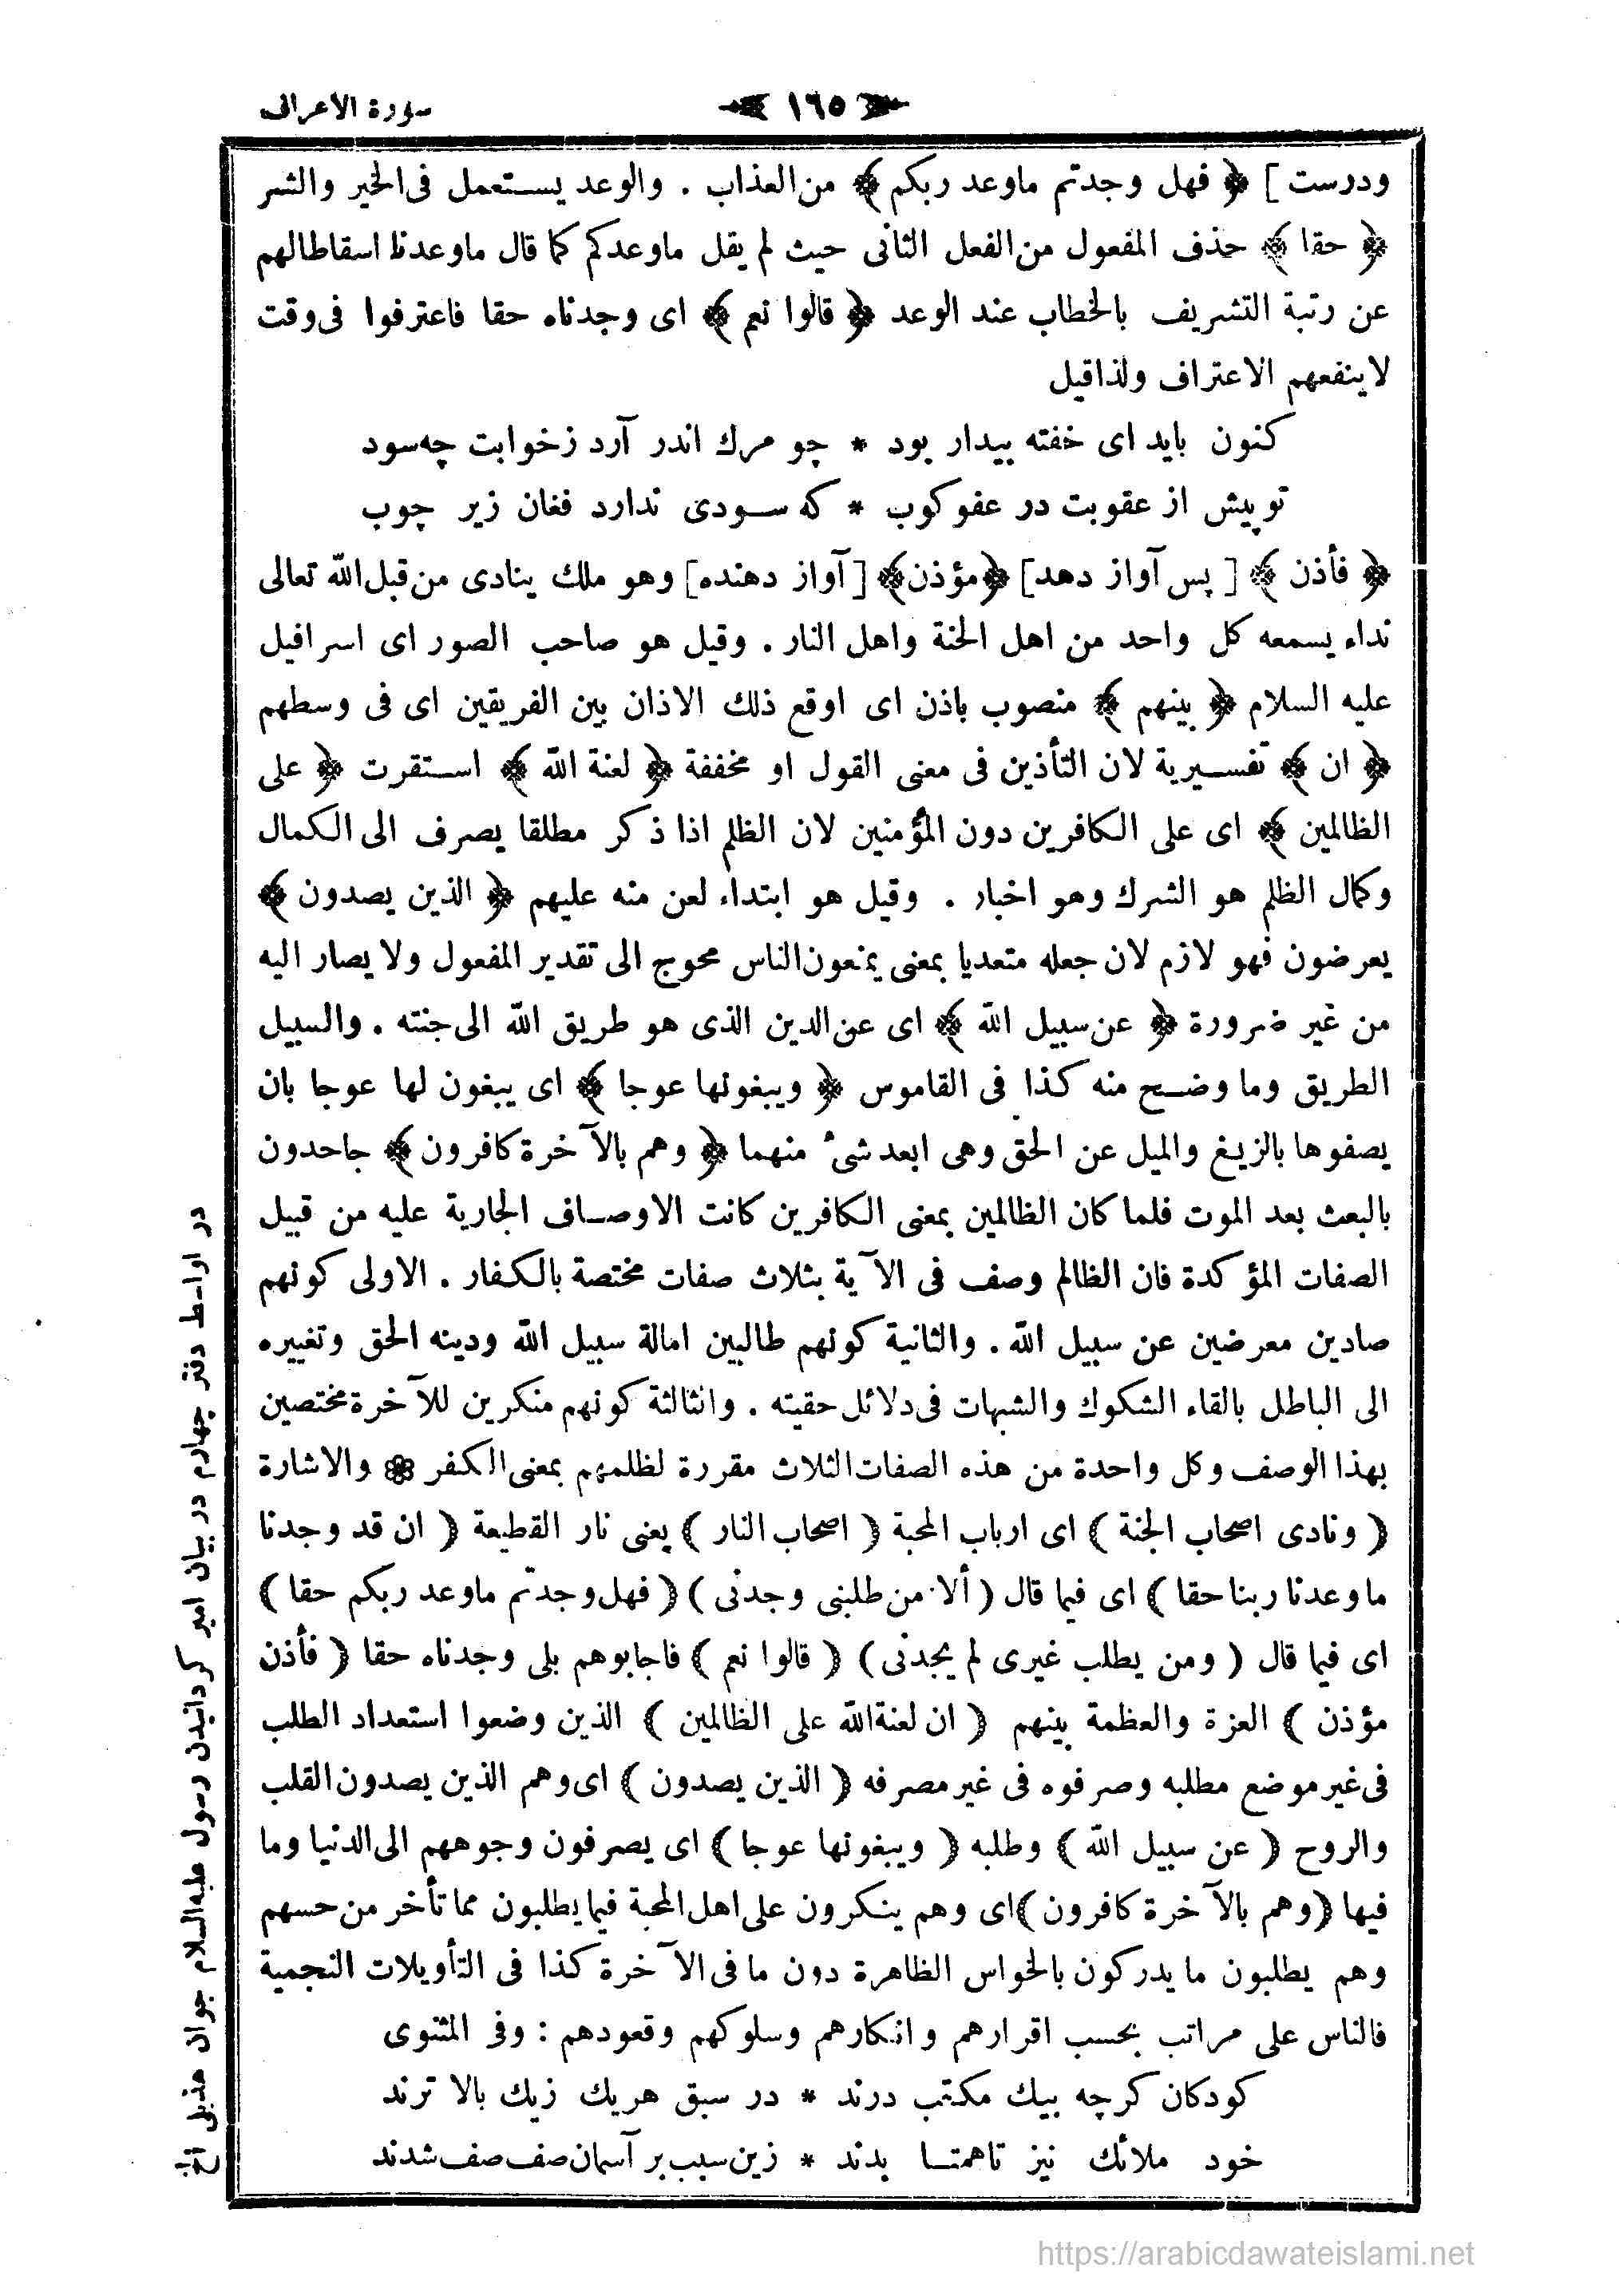 سورة الاعراف
١٦٥
ودرست ] ﴿ فهل وجدتم ماوعد ربكم ﴾ من العذاب . والوعد يستعمل فى الخير والشر
﴿ حقا ﴾ حذف المفعول من الفعل الثانى حيث لم يقل ماوعدكم كما قال ماوعدنا اسقاطالهم
عن رتبة التشريف بالخطاب عند الوعد ﴿ قالوا نعم ﴾ اى وجدناه حقا فاعترفوا فى وقت
لاينفعهم الاعتراف ولذاقيل
كنون بايد اى خفته بيدار بود * چو مرك اندر آرد زخوابت چه سود
تو پيش از عقوبت در عفو كوب * كه سودى ندارد فغان زير چوب
﴿ فأذن ﴾ [ پس آواز دهد ] ﴿ مؤذن ﴾ [ آواز دهنده ] وهو ملك ينادى من قبل الله تعالى
نداء يسمعه كل واحد من اهل الجنة واهل النار . وقيل هو صاحب الصور اى اسرافيل
عليه السلام ﴿ بينهم ﴾ منصوب باذن اى اوقع ذلك الاذان بين الفريقين اى فى وسطهم
﴿ ان ﴾ تفسيرية لان التأذين فى معنى القول او مخففة ﴿ لعنة الله ﴾ استقرت ﴿ على
الظالمين ﴾ اى على الكافرين دون المؤمنين لان الظلم اذا ذكر مطلقا يصرف الى الكمال
وكمال الظلم هو الشرك وهو اخبار . وقيل هو ابتداء لعن منه عليهم ﴿ الذين يصدون ﴾
يعرضون فهو لازم لان جعله متعديا بمعنى يمنعون الناس محوج الى تقدير المفعول ولا يصار اليه
من غير ضرورة ﴿ عن سبيل الله ﴾ اى عن الدين الذى هو طريق الله الى جنته . والسبيل
الطريق وما وضح منه كذا فى القاموس ﴿ ويبغونها عوجا ﴾ اى يبغون لها عوجا بان
يصفوها بالزيغ والميل عن الحق وهى ابعد شئ منهما ﴿ وهم بالآخرة كافرون ﴾ جاحدون
بالبعث بعد الموت فلما كان الظالمين بمعنى الكافرين كانت الاوصاف الجارية عليه من قبيل
الصفات المؤكدة فان الظالم وصف فى الآية بثلاث صفات مختصة بالكفار . الاولى كونهم
صادين معرضين عن سبيل الله . والثانية كونهم طالبين امالة سبيل الله ودينه الحق وتغييره
الى الباطل بالقاء الشكوك والشبهات فى دلائل حقيته . والثالثة كونهم منكرين للآخرة مختصين
بهذا الوصف وكل واحدة من هذه الصفات الثلاث مقررة لظلمهم بمعنى الكفر ۞ والاشارة
( ونادى اصحاب الجنة ) اى ارباب المحبة ( اصحاب النار ) يعنى نار القطيعة ( ان قد وجدنا
ماوعدنا ربنا حقا ) اى فيما قال ( ألا من طلبنى وجدنى ) ( فهل وجدتم ماوعد ربكم حقا )
اى فيما قال ( ومن يطلب غيرى لم يجدنى ) ( قالوا نعم ) فاجابوهم بلى وجدناه حقا ( فأذن
مؤذن ) العزة والعظمة بينهم ( ان لعنة الله على الظالمين ) الذين وضعوا استعداد الطلب
فى غير موضع مطلبه وصرفوه فى غير مصرفه ( الذين يصدون ) اى وهم الذين يصدون القلب
والروح ( عن سبيل الله ) وطلبه ( ويبغونها عوجا ) اى يصرفون وجوههم الى الدنيا وما
فيها ( وهم بالآخرة كافرون ) اى وهم ينكرون على اهل المحبة فيما يطلبون مما تأخر من حسهم
وهم يطلبون ما يدركون بالحواس الظاهرة دون ما فى الآخرة كذا فى التأويلات النجمية
فالناس على مراتب بحسب اقرارهم وانكارهم وسلوكهم وقعودهم : وفى المثنوى
كودكان كرچه بيك مكتب درند * در سبق هريك زيك بالا ترند
خود ملائك نيز ناهمتا بدند * زين سبب بر آسمان صف صف شدند
در اواسط دفتر چهارم در بيان امير كردانيدن رسول عليه السلام جوان هذيلى الخ
https://arabicdawateislami.net